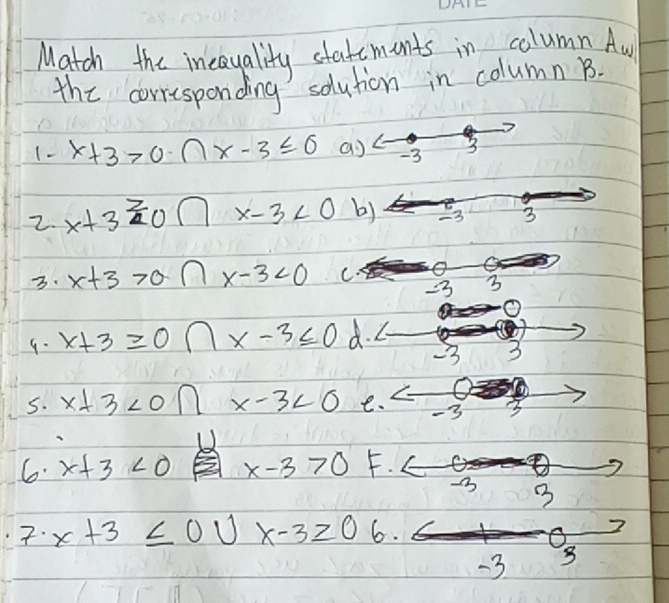 DATE
Match the inequality statements in column A w
the corresponding solution in column B.
1- x+3>0 ∩ x-3≤0 a) -3 3
2. x+3≥0 ∩ x-3<0 b) -3 3
3. x+3>0 ∩ x-3<0 c. -3 3
4. x+3≥0 ∩ x-3≤0 d. -3 3
5. x+3<0 ∩ x-3<0 e. -3 3
6. x+3<0 U x-3>0 F. -3 3
7. x+3 ≤ 0 U x-3≥0 G. -3 3